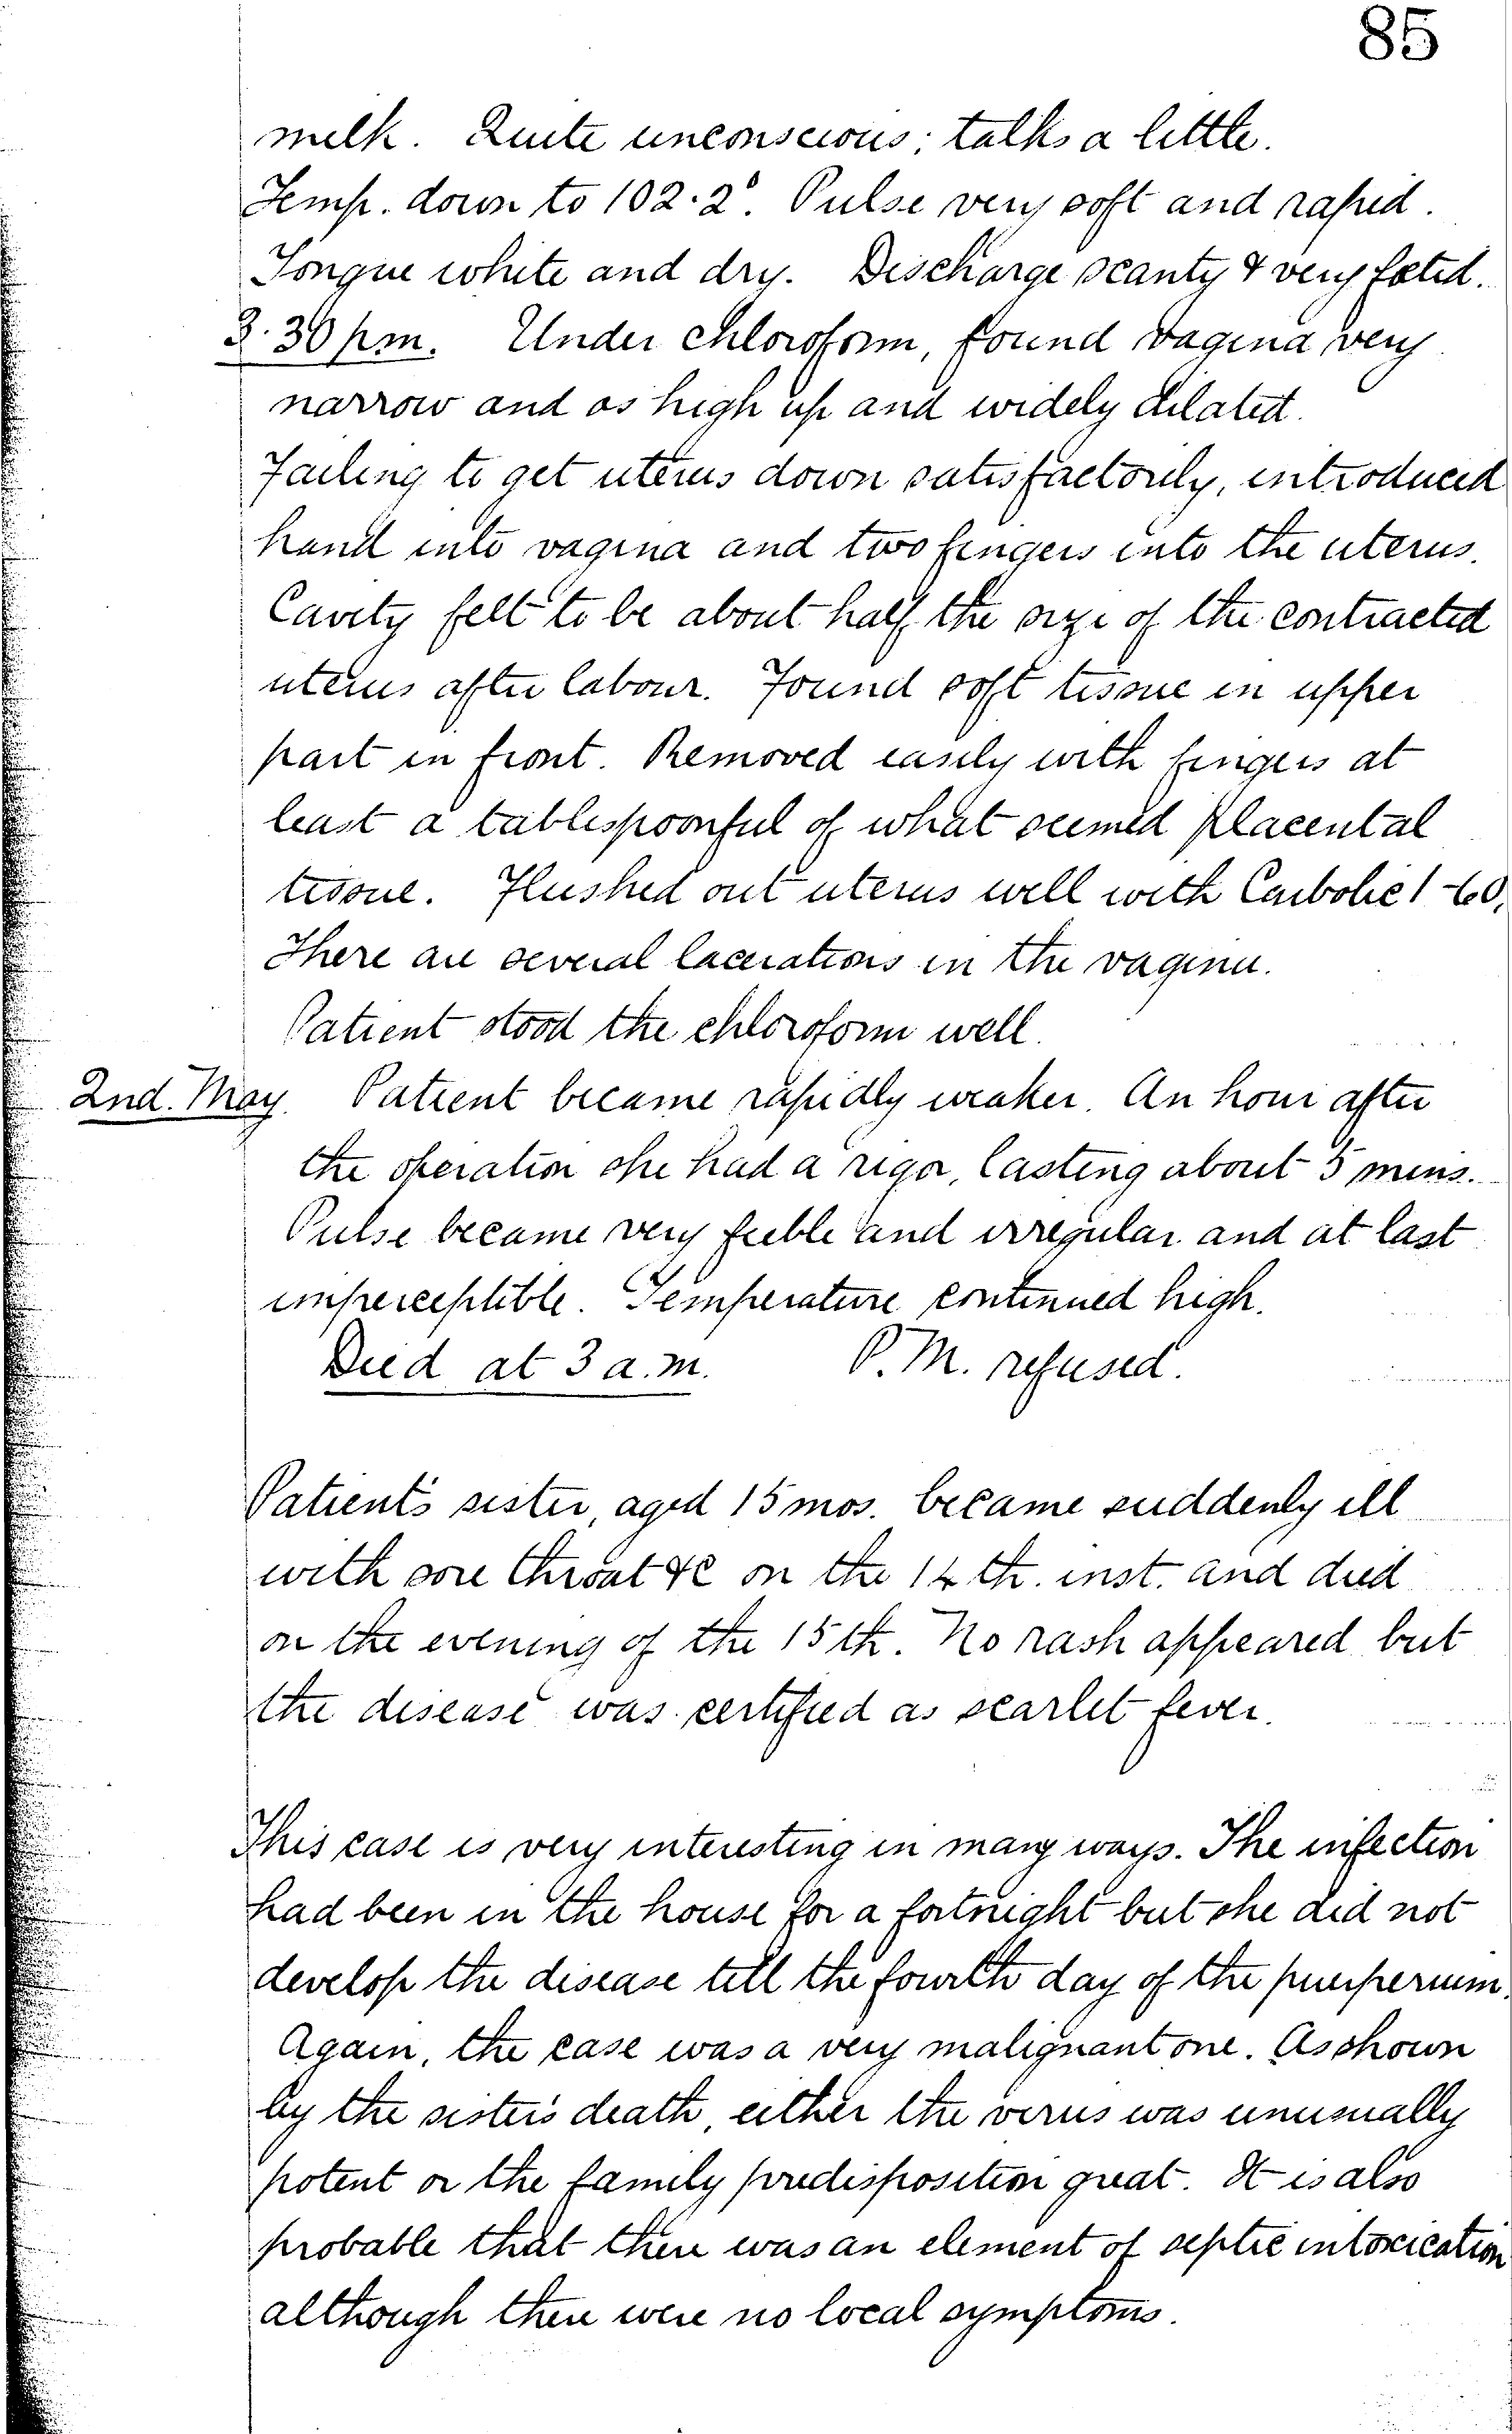 85
milk. Quite unconscious; talks a little.
Temp. down to 102.2°. Pulse very soft and rapid.
Tongue white and dry. Discharge scanty & very fœtid.
3.30 p.m. Under chloroform, found vagina very
narrow and os high up and widely dilated.
Failing to get uterus down satisfactorily, introduced
hand into vagina and two fingers into the uterus.
Cavity felt to be about half the size of the contracted
uterus after labour. Found soft tissue in upper
part in front. Removed easily with fingers at
least a tablespoonful of what seemed placental
tissue. Flushed out uterus well with Carbolic 1-60.
There are several lacerations in the vagina.
Patient stood the chloroform well.
2nd. May. Patient became rapidly weaker. An hour after
the operation she had a rigor, lasting about 5 mins.
Pulse became very feeble and irregular and at last
imperceptible. Temperature continued high.
Died at 3 a.m. P.M. refused.
Patient's sister, aged 15 mos. became suddenly ill
with sore throat &c on the 14th. inst. and died
on the evening of the 15th. No rash appeared but
the disease was certified as scarlet fever.
This case is very interesting in many ways. The infection
had been in the house for a fortnight but she did not
develop the disease till the fourth day of the puerperium.
Again, the case was a very malignant one. As shown
by the sister's death, either the virus was unusually
potent or the family predisposition great. It is also
probable that there was an element of septic intoxication
although there were no local symptoms.